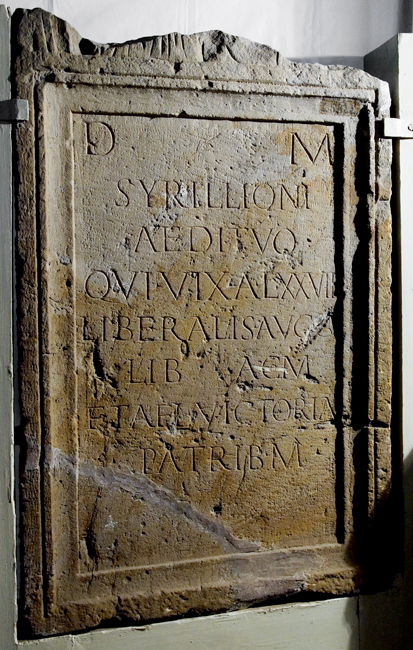 D M
SYRILLIONI
AEDITVO
QVI VIX A LXXVII
LIBERALIS AVG
LIB
ET AEL VICTORIA
PATRIB M